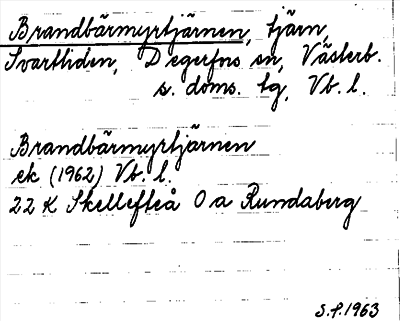 Brandbärmyrtjärnen, tjärn,
Svartliden, Degerfors sn, Västerb.
s. doms. tg, Vb. l.
Brandbärmyrtjärnen
ek (1962) Vb. l.
22 K Skellefteå 0 a Rundaberg
S.P. 1963